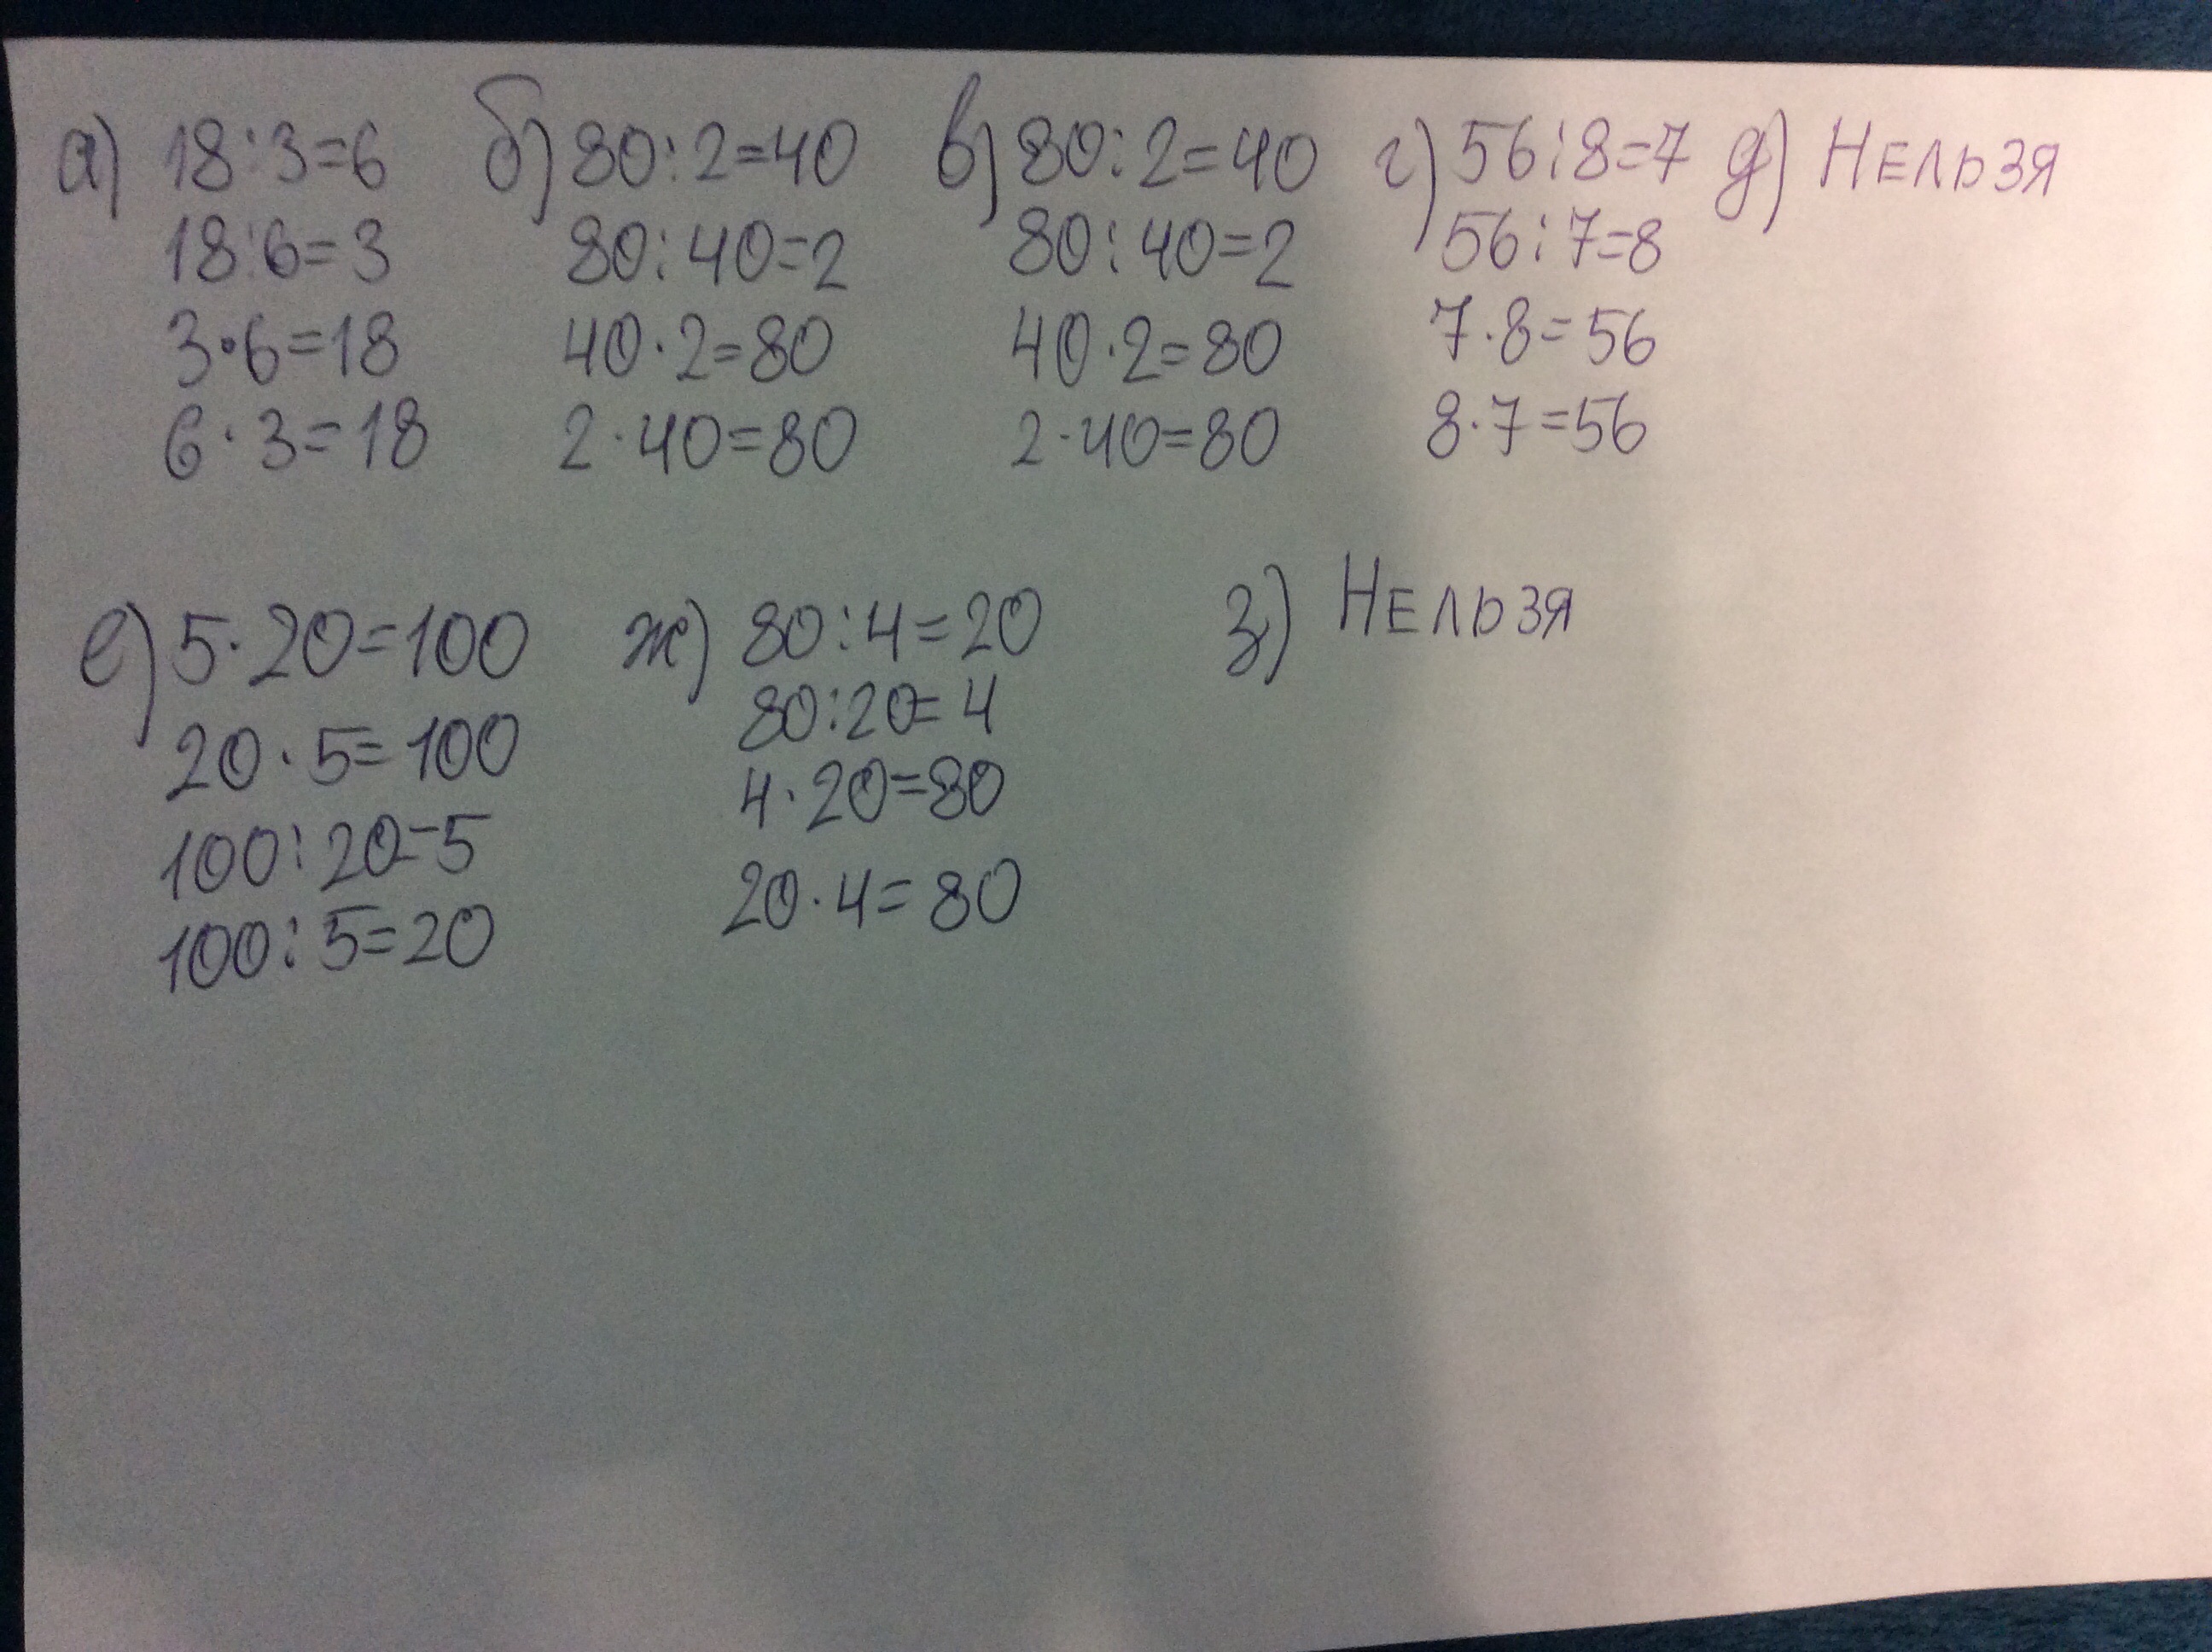 а) 18:3=6 б) 80:2=40 в) 80:2=40 г) 56:8=7 д) Нельзя
18:6=3 80:40=2 80:40=2 56:7=8
3·6=18 40·2=80 40·2=80 7·8=56
6·3=18 2·40=80 2·40=80 8·7=56
е) 5·20=100 ж) 80:4=20 з) Нельзя
20·5=100 80:20=4
100:20=5 4·20=80
100:5=20 20·4=80